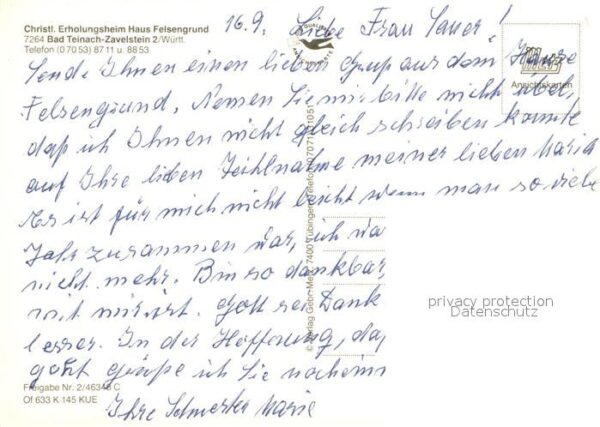 Christl. Erholungsheim Haus Felsengrund
7264 Bad Teinach-Zavelstein 2/Württ.
Telefon (0 70 53) 87 11 u. 88 53
16.9. Liebe Frau Sauer!
Sende Ihnen einen lieben Gruß aus dem Hause
Ansichtskarten
Felsengrund. Nemen Sie mir bitte nicht übel,
daß ich Ihnen nicht gleich schreiben konnte
auf Ihre lieben Teihlnahme meiner lieben Maria
Es ist für mich nicht leicht wenn man so viele
Jahr zusammen war, ich
nicht mehr. Bin so dankbar,
mit mir ist. Gott sei Dank
besser. In der Hoffnung, das
geht grüße ich Sie nocheim
Ihre Schwester Marie
© Verlag Gebr. Metz, 7400 Tübingen, Telefon 07071
privacy protection
Datenschutz
Freigabe Nr. 2/46348 C
Of 633 K 145 KUE